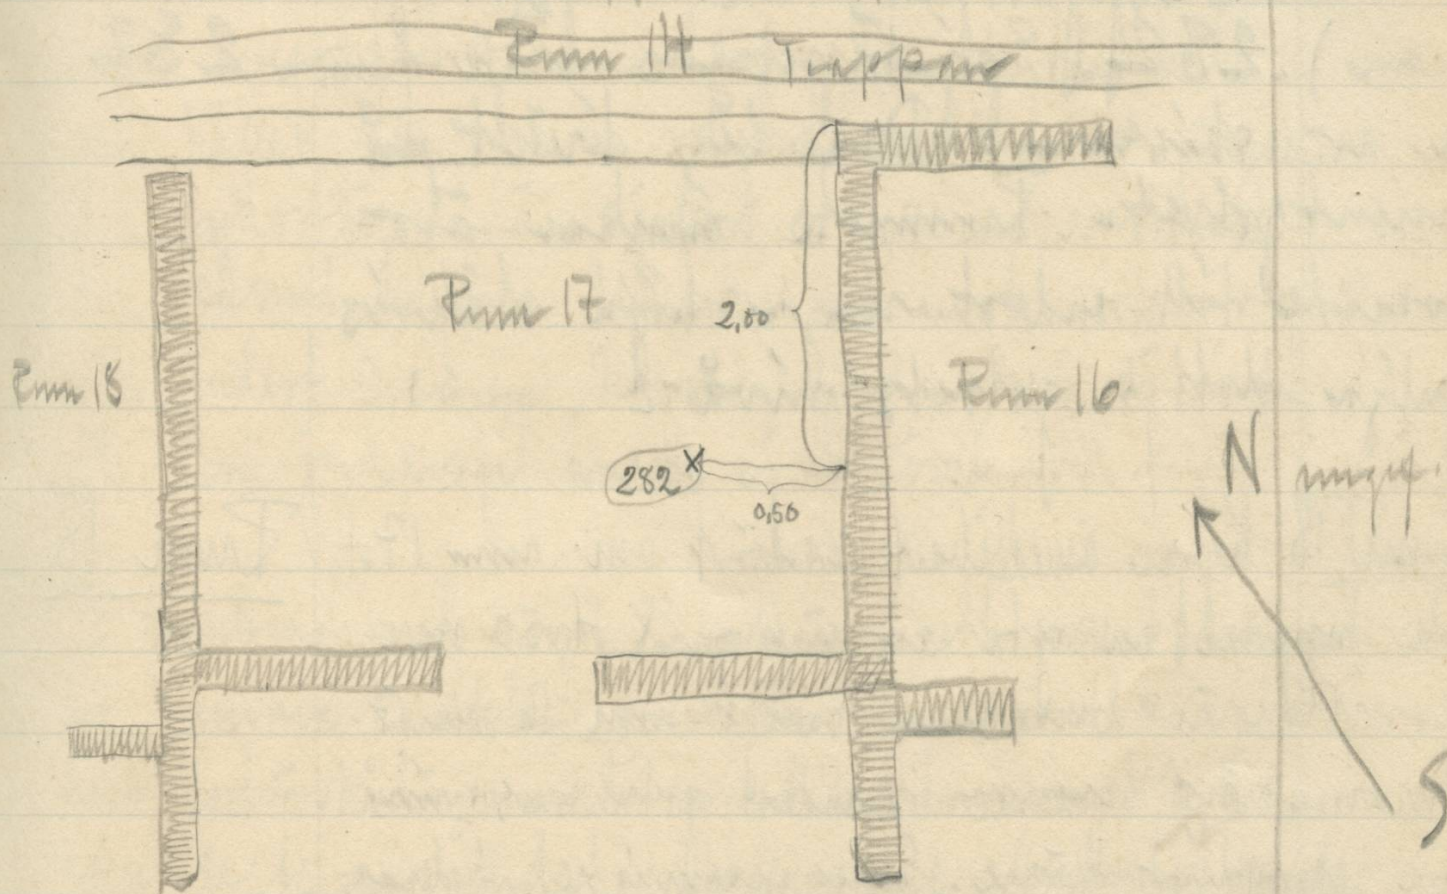 Rum 14 Trappan
Rum 17
2,00
Rum 18
Rum 16
282
0,50
N
S